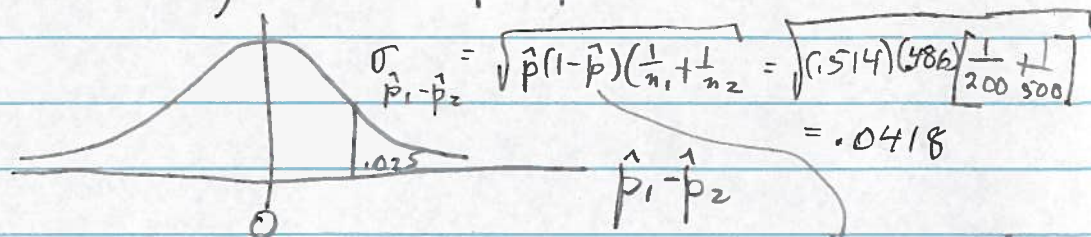 σ p̂₁-p̂₂ = √p̂(1-p̂)(1/n₁ + 1/n₂ = √(.514)(.486)[1/200 + 1/500]
= .0418
.025
p̂₁-p̂₂
0